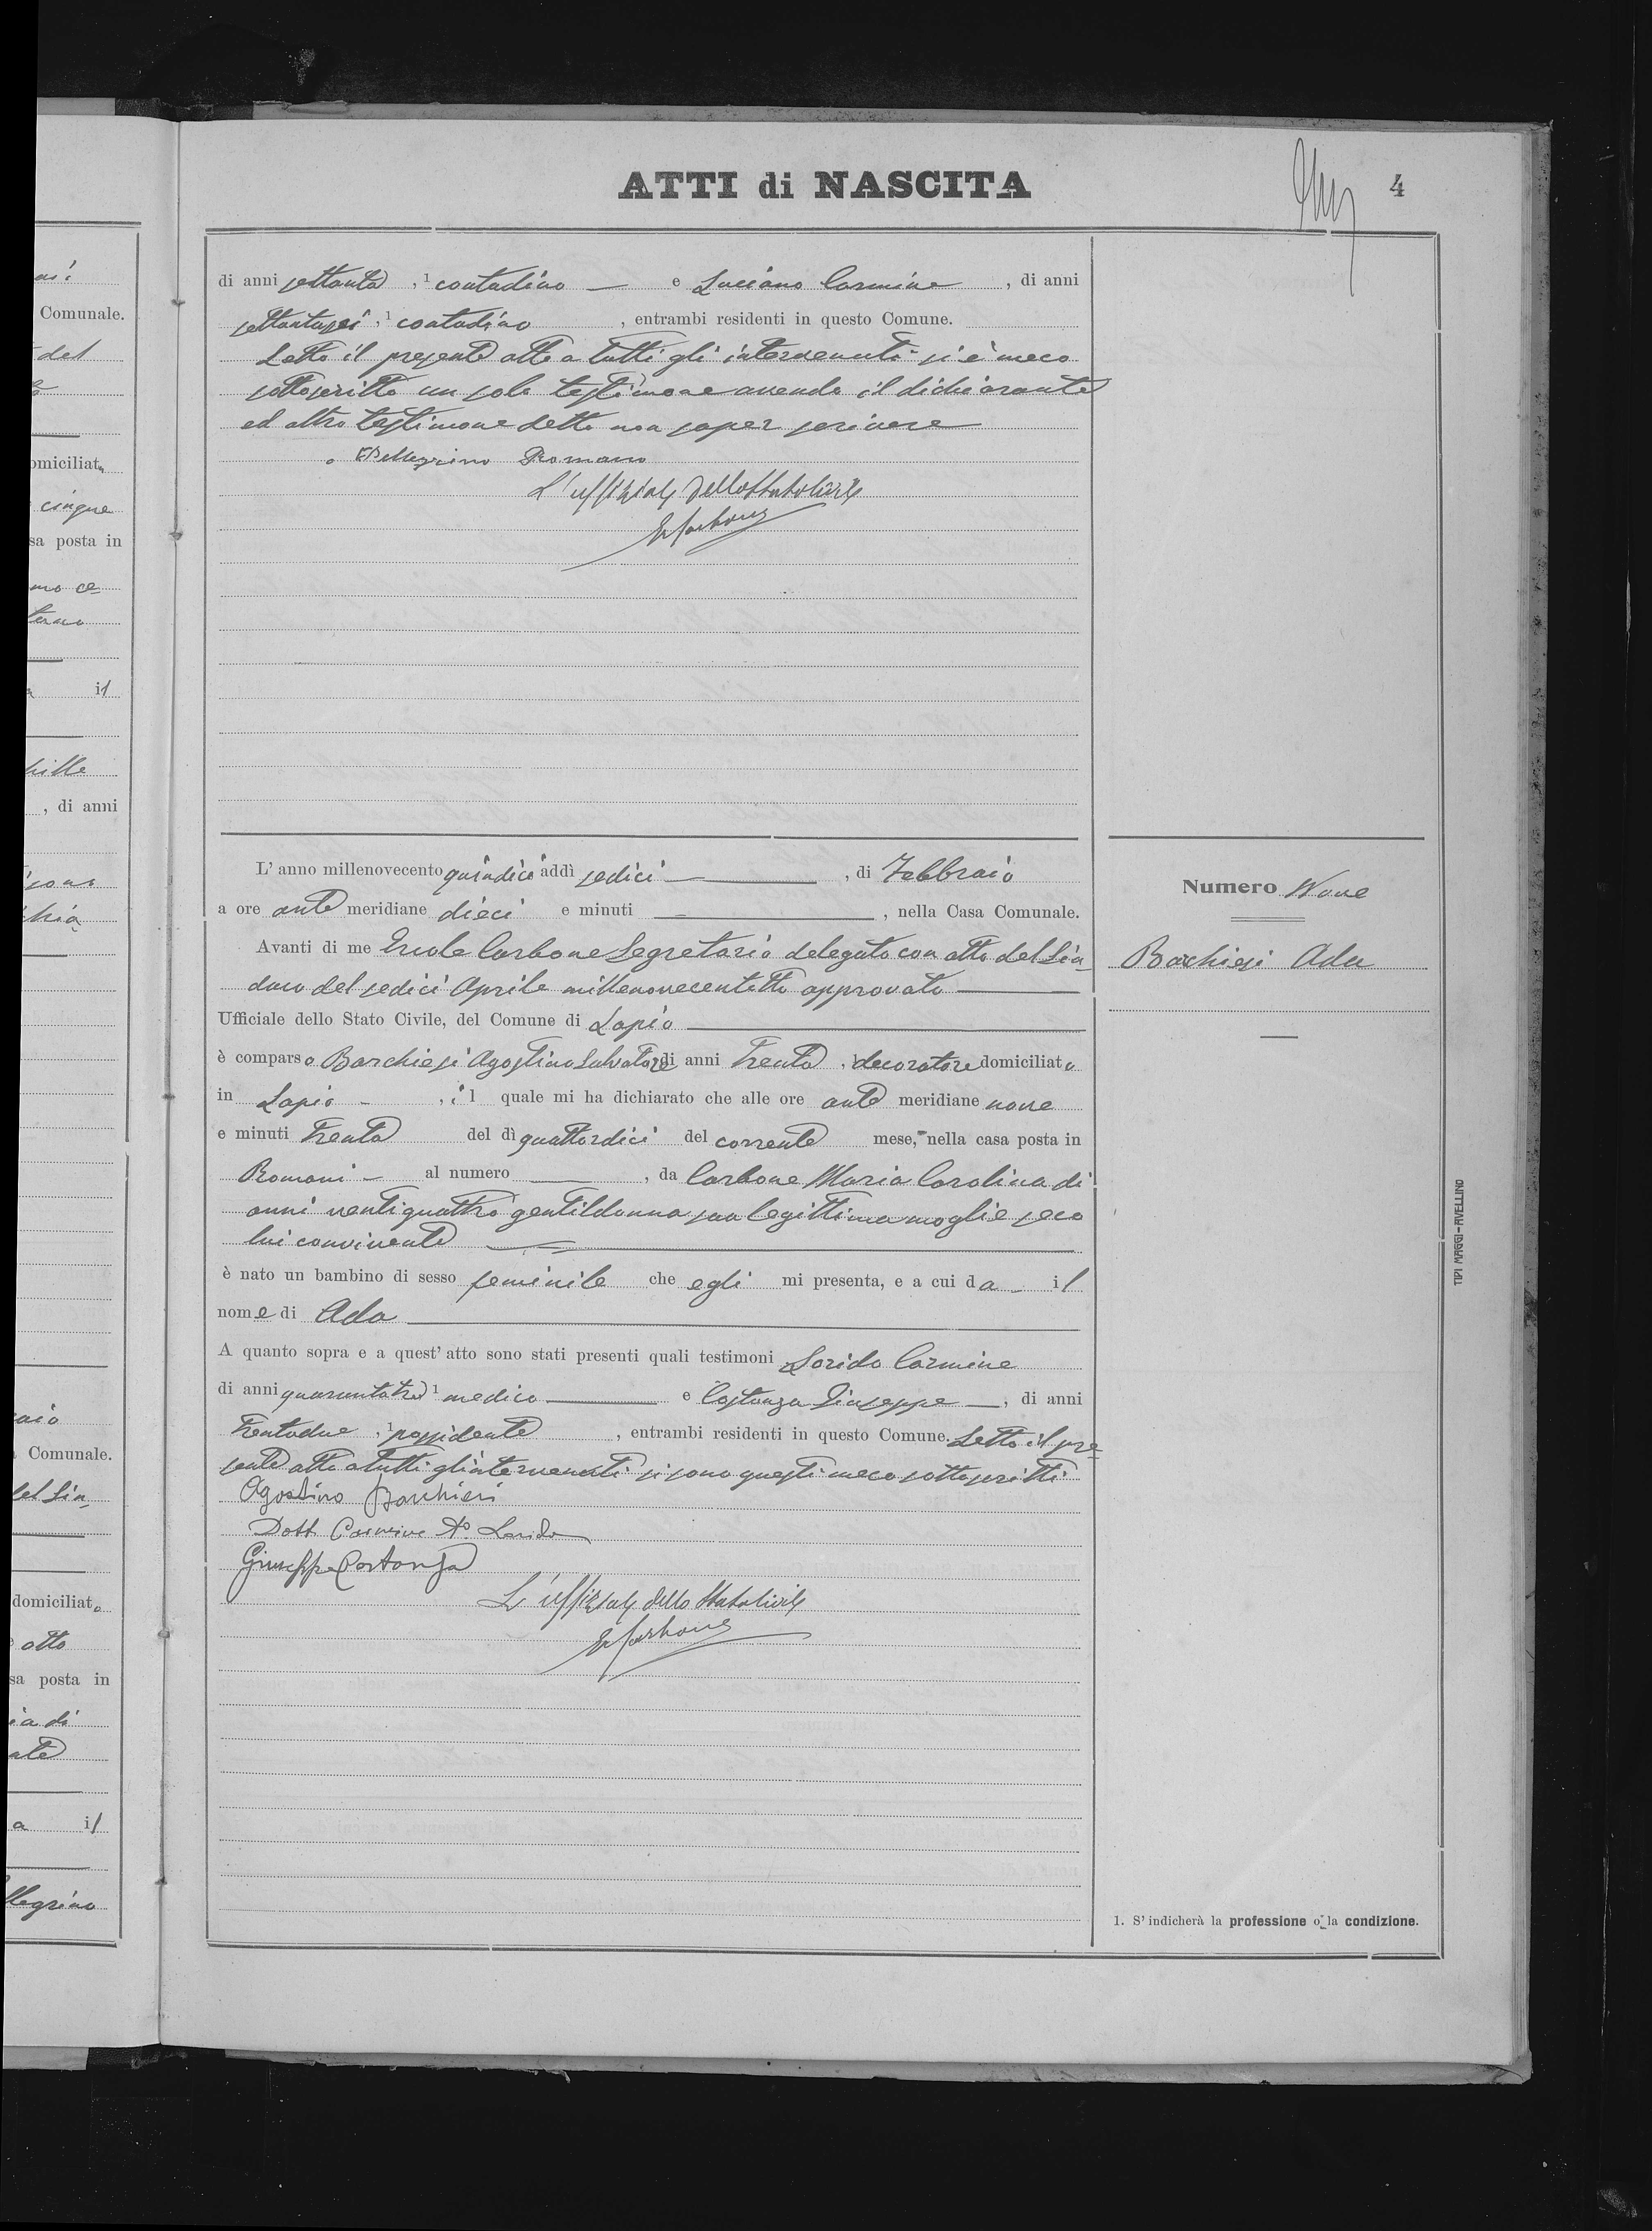 ATTI di NASCITA
4
di anni settanta, 1 contadino — e Luciano Carmine, di anni
settantasei, 1 contadino, entrambi residenti in questo Comune.
Letto il presente atto a tutti gli intervenuti si è meco
sottoscritto un solo testimone avendo il dichiarante
ed altro testimone detto non saper scrivere
Pellegrino Romano
L'uffiziale dello Stato Civile
E Carbone
L'anno millenovecento quindici addì sedici —, di Febbraio
a ore ante meridiane dieci e minuti —, nella Casa Comunale.
Avanti di me Ercole Carbone Segretario delegato con atto del Sin-
daco del sedici Aprile millenovecentotto approvato —
Ufficiale dello Stato Civile, del Comune di Lapio —
è comparso Barchiesi Agostino Salvatore di anni trenta, 1 decoratore domiciliato
in Lapio —, il quale mi ha dichiarato che alle ore ante meridiane nove
e minuti trenta del dì quattordici del corrente mese, nella casa posta in
Romani — al numero —, da Carbone Maria Carolina di
anni ventiquattro gentildonna sua legittima moglie seco
lui convivente —
è nato un bambino di sesso feminile che egli mi presenta, e a cui da — il
nome di Ada —
A quanto sopra e a quest'atto sono stati presenti quali testimoni Lorido Carmine
di anni quarantatre 1 medico — e Costanza Giuseppe —, di anni
trentadue, 1 possidente, entrambi residenti in questo Comune. Letto il pre-
sente atto a tutti gl'intervenuti si sono questi meco sottoscritti
Agostino Barchiesi
Dott. Carmine Lorido
Giuseppe Costanza
L'uffiziale dello Stato Civile
E Carbone
Numero Nove
Barchiesi Ada
1. S'indicherà la professione o la condizione.
TIPI MAGGI-AVELLINO
Comunale.
del
omiciliat
cinque
sa posta in
il
, di anni
Comunale.
del Sin-
domiciliato
otto
sa posta in
ia di
a il